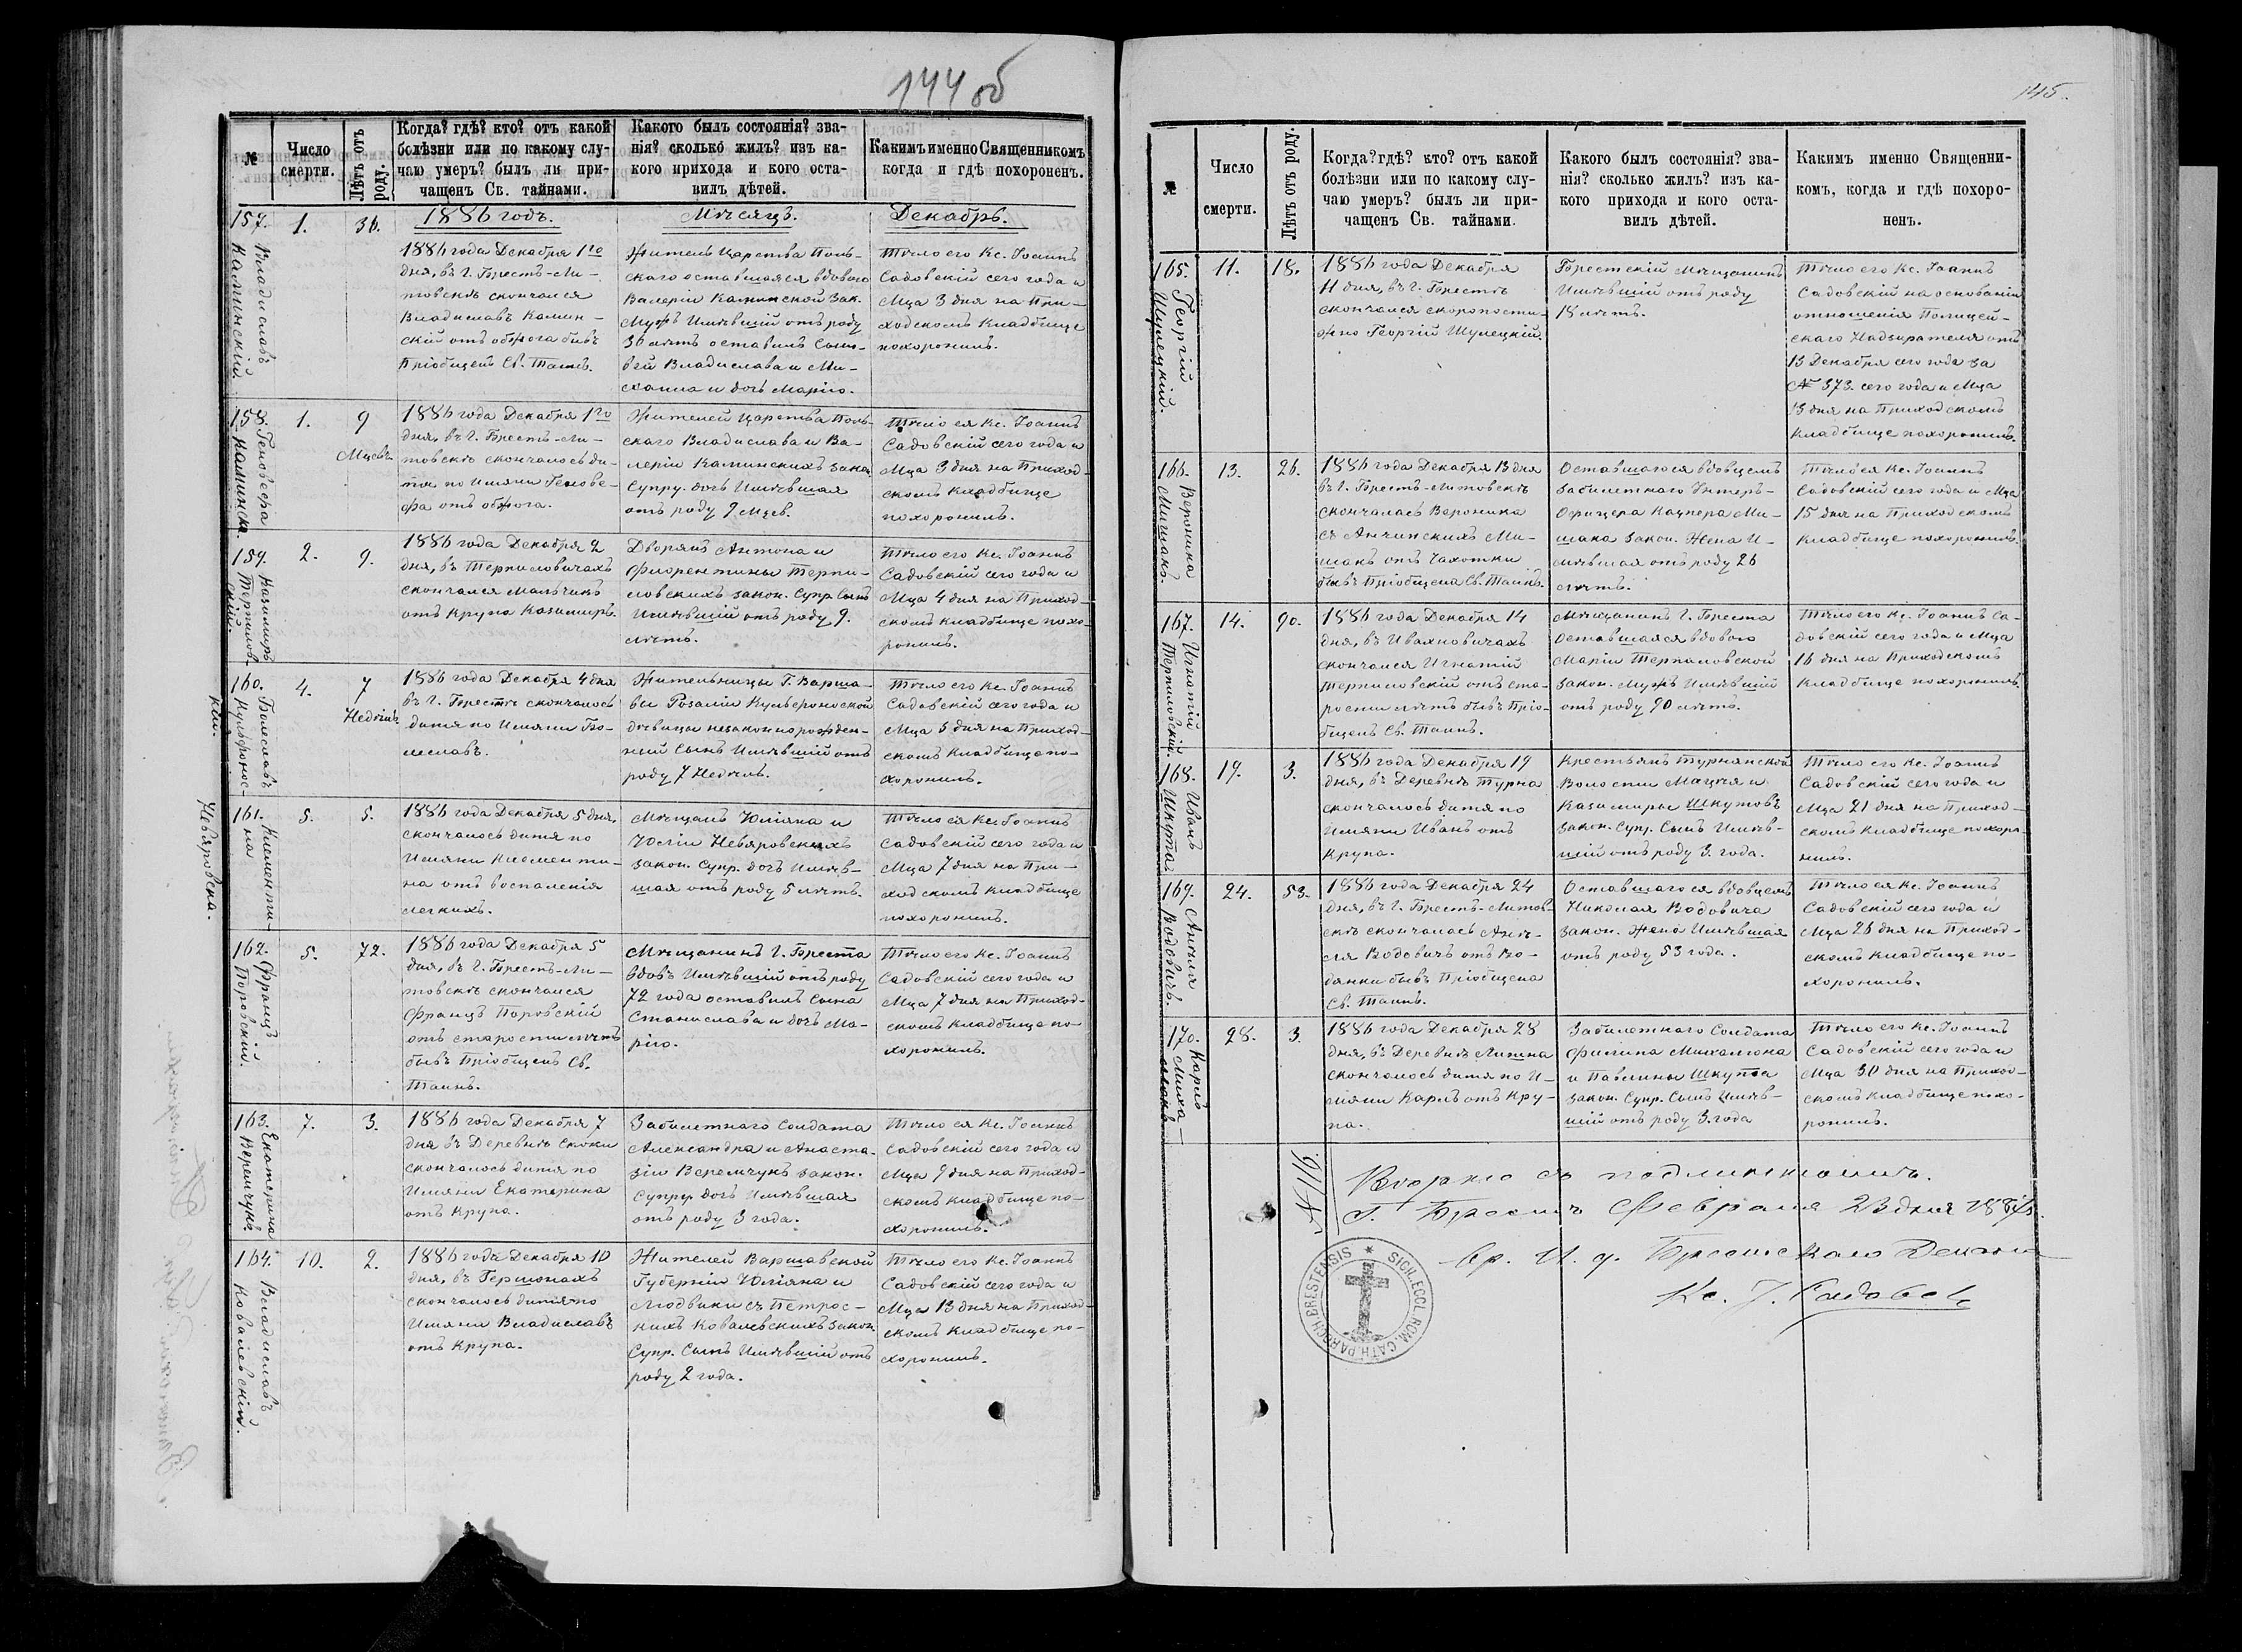 144 об
№
Число
смерти.
Лѣтъ отъ
роду.
Когда? гдѣ? кто? отъ какой
болѣзни или по какому слу-
чаю умеръ? былъ ли при-
чащенъ Св. тайнами.
Какого былъ состоянія? зва-
нія? сколько жилъ? изъ ка-
кого прихода и кого оста-
вилъ дѣтей.
Какимъ именно Священникомъ
когда и гдѣ похороненъ.
1886 годъ.
Мѣсяцъ.
Декабрь.
157.
Владиславъ
Каминскій
1.
36.
1886 года Декабря 1го
дня, въ г. Брестъ-Ли-
товскѣ скончался
Владиславъ Камин-
скій отъ обжога бывъ
Пріобщенъ Св. Таинъ.
Житель Царства Поль-
скаго оставшаяся вдовою
Валеріи Каминской зак.
Мужъ Имѣвшій отъ роду
36 лѣтъ оставилъ Сыно-
вей Владислава и Ми-
хаила и дочь Марію.
Тѣло его Кс. Іоаннъ
Садовскій сего года и
Мца 3 дня на При-
ходскомъ Кладбище
похоронилъ.
158.
Геновефа
Каминска.
1.
9
Мцевъ
1886 года Декабря 1го
дня, въ г. Брестъ-Ли-
товскѣ скончалось ди-
тя по Имяни Генове-
фа отъ обжога.
Жителей Царства Поль-
скаго Владислава и Ва-
леріи Каминскихъ закон.
Супру. дочь Имѣвшая
отъ роду 9 мцев.
Тѣло ея Кс. Іоаннъ
Садовскій сего года и
Мца 3 дня на Приход-
скомъ Кладбище
похоронилъ.
159.
Казимиръ
Терпилов-
скій.
2.
9.
1886 года Декабря 2
дня, въ Терпиловичахъ
скончался Мальчикъ
отъ крупа Казимиръ.
Дворянъ Антона и
Флорентины Терпи-
ловскихъ закон. Супр. Сынъ
Имѣвшій отъ роду 9.
лѣтъ.
Тѣло его Кс. Іоаннъ
Садовскій сего года и
Мца 4 дня на Приход-
скомъ кладбище похо-
ронилъ.
160.
Болеславъ
Кульфронос-
кій.
4.
7
Недѣль
1886 года Декабря 4 дня
въ г. Брестѣ скончалось
дитя по Имяни Бо-
леславъ.
Жительницы Г. Варша-
вы Розаліи Кульвроноской
дѣвицы незаконнорожден-
ный Сынъ Имѣвшій отъ
роду 7 Недѣль.
Тѣло его Кс. Іоаннъ
Садовскій сего года и
Мца 5 дня на Приход-
скомъ Кладбище по-
хоронилъ.
161.
Клементи-
на
Невяровска.
5.
5.
1886 года Декабря 5 дня,
скончалось дитя по
Имяни Клементи-
на отъ воспаленія
легкихъ.
Мѣщанъ Юліяна и
Юліи Невяровскихъ
закон. Супр. дочь Имѣв-
шая отъ роду 5 лѣтъ.
Тѣло ея Кс. Іоаннъ
Садовскій сего года и
Мца 7 дня на При-
ходскомъ кладбище
похоронилъ.
162.
Францъ
Поровскій.
5.
72.
1886 года Декабря 5
дня, въ г. Брестъ-Ли-
товскѣ скончался
Францъ Поровскій
отъ старости лѣтъ
бывъ Пріобщенъ Св.
Таинъ.
Мѣщанинъ г. Бреста
вдовъ Имѣвшій отъ роду
72 года оставилъ Сына
Станислава и дочь Ма-
рію.
Тѣло его Кс. Іоаннъ
Садовскій сего года и
Мца 7 дня на Приход-
скомъ Кладбище по-
хоронилъ.
163.
Екатерина
Веремчукъ
7.
3.
1886 года Декабря 7
дня въ Деревнѣ Скоки
скончалось дитя по
Имяни Екатерина
отъ крупа.
Забилетнаго Солдата
Александра и Анаста-
зіи Веремчукъ закон.
Супру. дочь Имѣвшая
отъ роду 3 года.
Тѣло ея Кс. Іоаннъ
Садовскій сего года и
Мца 9 дня на Приход-
скомъ Кладбище по-
хоронилъ.
164.
Владиславъ
Ковалевскій.
10.
2.
1886 года Декабря 10
дня, въ Гершонахъ
скончалось дитя по
Имяни Владиславъ
отъ крупа.
Жителей Варшавской
Губерніи Юліяна и
Людвики съ Петрос-
кихъ Ковалевскихъ закон.
Супр. Сынъ Имѣвшій отъ
роду 2 года.
Тѣло его Кс. Іоаннъ
Садовскій сего года и
Мца 13 дня на Приход-
скомъ Кладбище по-
хоронилъ.
145.
№
Число
смерти.
Лѣтъ отъ роду.
Когда? гдѣ? кто? отъ какой
болѣзни или по какому слу-
чаю умеръ? былъ ли при-
чащенъ Св. тайнами.
Какого былъ состоянія? зва-
нія? сколько жилъ? изъ ка-
кого прихода и кого оста-
вилъ дѣтей.
Какимъ именно Священни-
комъ, когда и гдѣ похоро-
ненъ.
165.
Георгій
Шулецкій.
11.
18.
1886 года Декабря
11 дня, въ г. Брестѣ
скончался скоропости-
жно Георгій Шулецкій.
Брестскій Мѣщанинъ
Имѣвшій отъ роду
18 лѣтъ.
Тѣло его Кс. Іоаннъ
Садовскій на основаніи
отношенія Полицей-
скаго Надзирателя отъ
13 Декабря сего года за
№ 373. сего года и Мца
13 дня на Приходскомъ
Кладбище похоронилъ.
166.
Вероника
Мишакъ.
13.
26.
1886 года Декабря 13 дня
въ г. Брестъ-Литовскѣ
скончалась Вероника
съ Анчинскихъ Ми-
шакъ отъ Чахотки
бывъ Пріобщена Св. Таинъ.
Оставшагося вдовцемъ
Забилетнаго Унтеръ-
Офицера Кацпера Ми-
шака закон. Жена И-
мѣвшая отъ роду 26
лѣтъ.
Тѣло ея Кс. Іоаннъ
Садовскій сего года и Мца
15 дня на Приходскомъ
Кладбище похоронилъ.
167.
Игнатій
Терпиловскій.
14.
90.
1886 года Декабря 14
дня, въ Ивахновичахъ
скончался Игнатій
Терпиловскій отъ ста-
росни лѣтъ бывъ Прі-
бщенъ Св. Таинъ.
Мѣщанинъ г. Бреста
Оставшаяся вдовою
Маріи Терпиловской
закон. Мужъ Имѣвшій
отъ роду 90 лѣтъ.
Тѣло его Кс. Іоаннъ Са-
довскій сего года и Мца
16 дня на Приходскомъ
Кладбище похоронилъ.
168.
Иванъ
Шкутъ
19.
3.
1886 года Декабря 19
дня, въ Деревнѣ Турна
скончалось дитя по
Имяни Иванъ отъ
крупа.
Крестьянъ Турнянской
Волости Мацѣя и
Казимиры Шкутовъ
закон. Супр. Сынъ Имѣв-
шій отъ роду 3. года.
Тѣло его Кс. Іоаннъ
Садовскій сего года и
Мца 21 дня на Приход-
скомъ Кладбище похоро-
нилъ.
169.
Анѣля
Водовичъ.
24.
53.
1886 года Декабря 24
дня, въ г. Брестъ-Литов-
скѣ скончалась Анѣ-
ля Водовичъ отъ Во-
дянки бывъ Пріобщена
Св. Таинъ.
Оставшагося вдовцемъ
Николая Водовича
закон. Жена Имѣвшая
отъ роду 53 года.
Тѣло ея Кс. Іоаннъ
Садовскій сего года и
Мца 26 дня на Приход-
скомъ Кладбище по-
хоронилъ.
170.
Карлъ
Миха-
28.
3.
1886 года Декабря 28
дня, въ Деревнѣ
скончалось дитя по И-
мяни Карлъ отъ кру-
па.
Забилетнаго Солдата
Филипа
и Павлины Шкутка
закон. Супр. Сынъ Имѣв-
шій отъ роду 3. года
Тѣло его Кс. Іоаннъ
Садовскій сего года и
Мца 30 дня на Приход-
скомъ Кладбище похо-
ронилъ.
№ 116
съ подлиннымъ.
Г. Брестъ Февраля 23 дня 1887 г.
Вр. И. д. Брестскаго Декана
Кс. І. Садовск
SIGIL. ECCL. ROM. CATH. PAROCH. BRESTENSIS